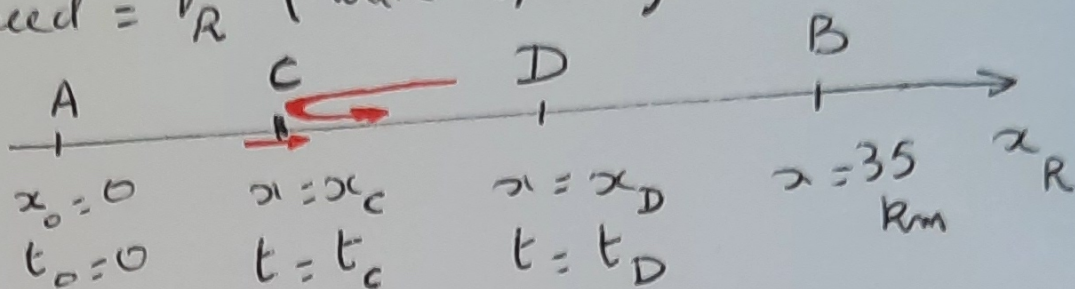 eed = v_R
A C D B
x₀ = 0 x = x_C x = x_D x = 35 x_R
km
t₀ = 0 t = t_C t = t_D